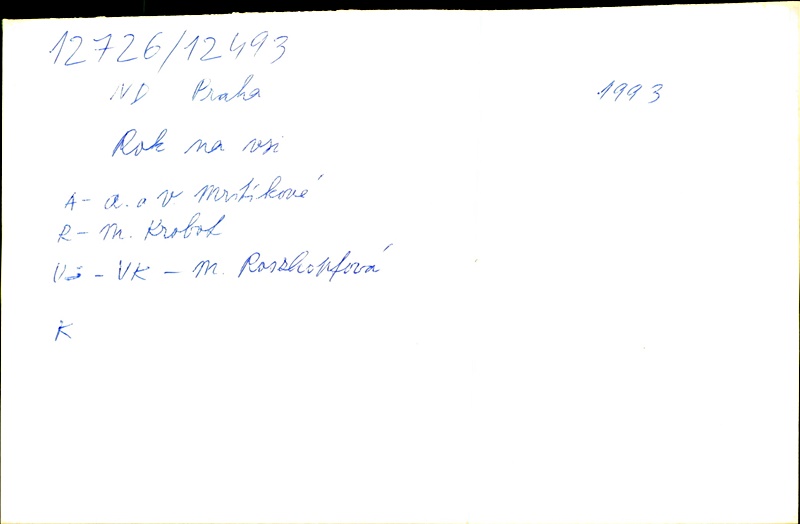 12726/12493
ND Praha 1993
Rok na vsi
A - A. a V Mrštíkové
R - M. Krobot
VŠ - VK - M. Roszkopfová
K